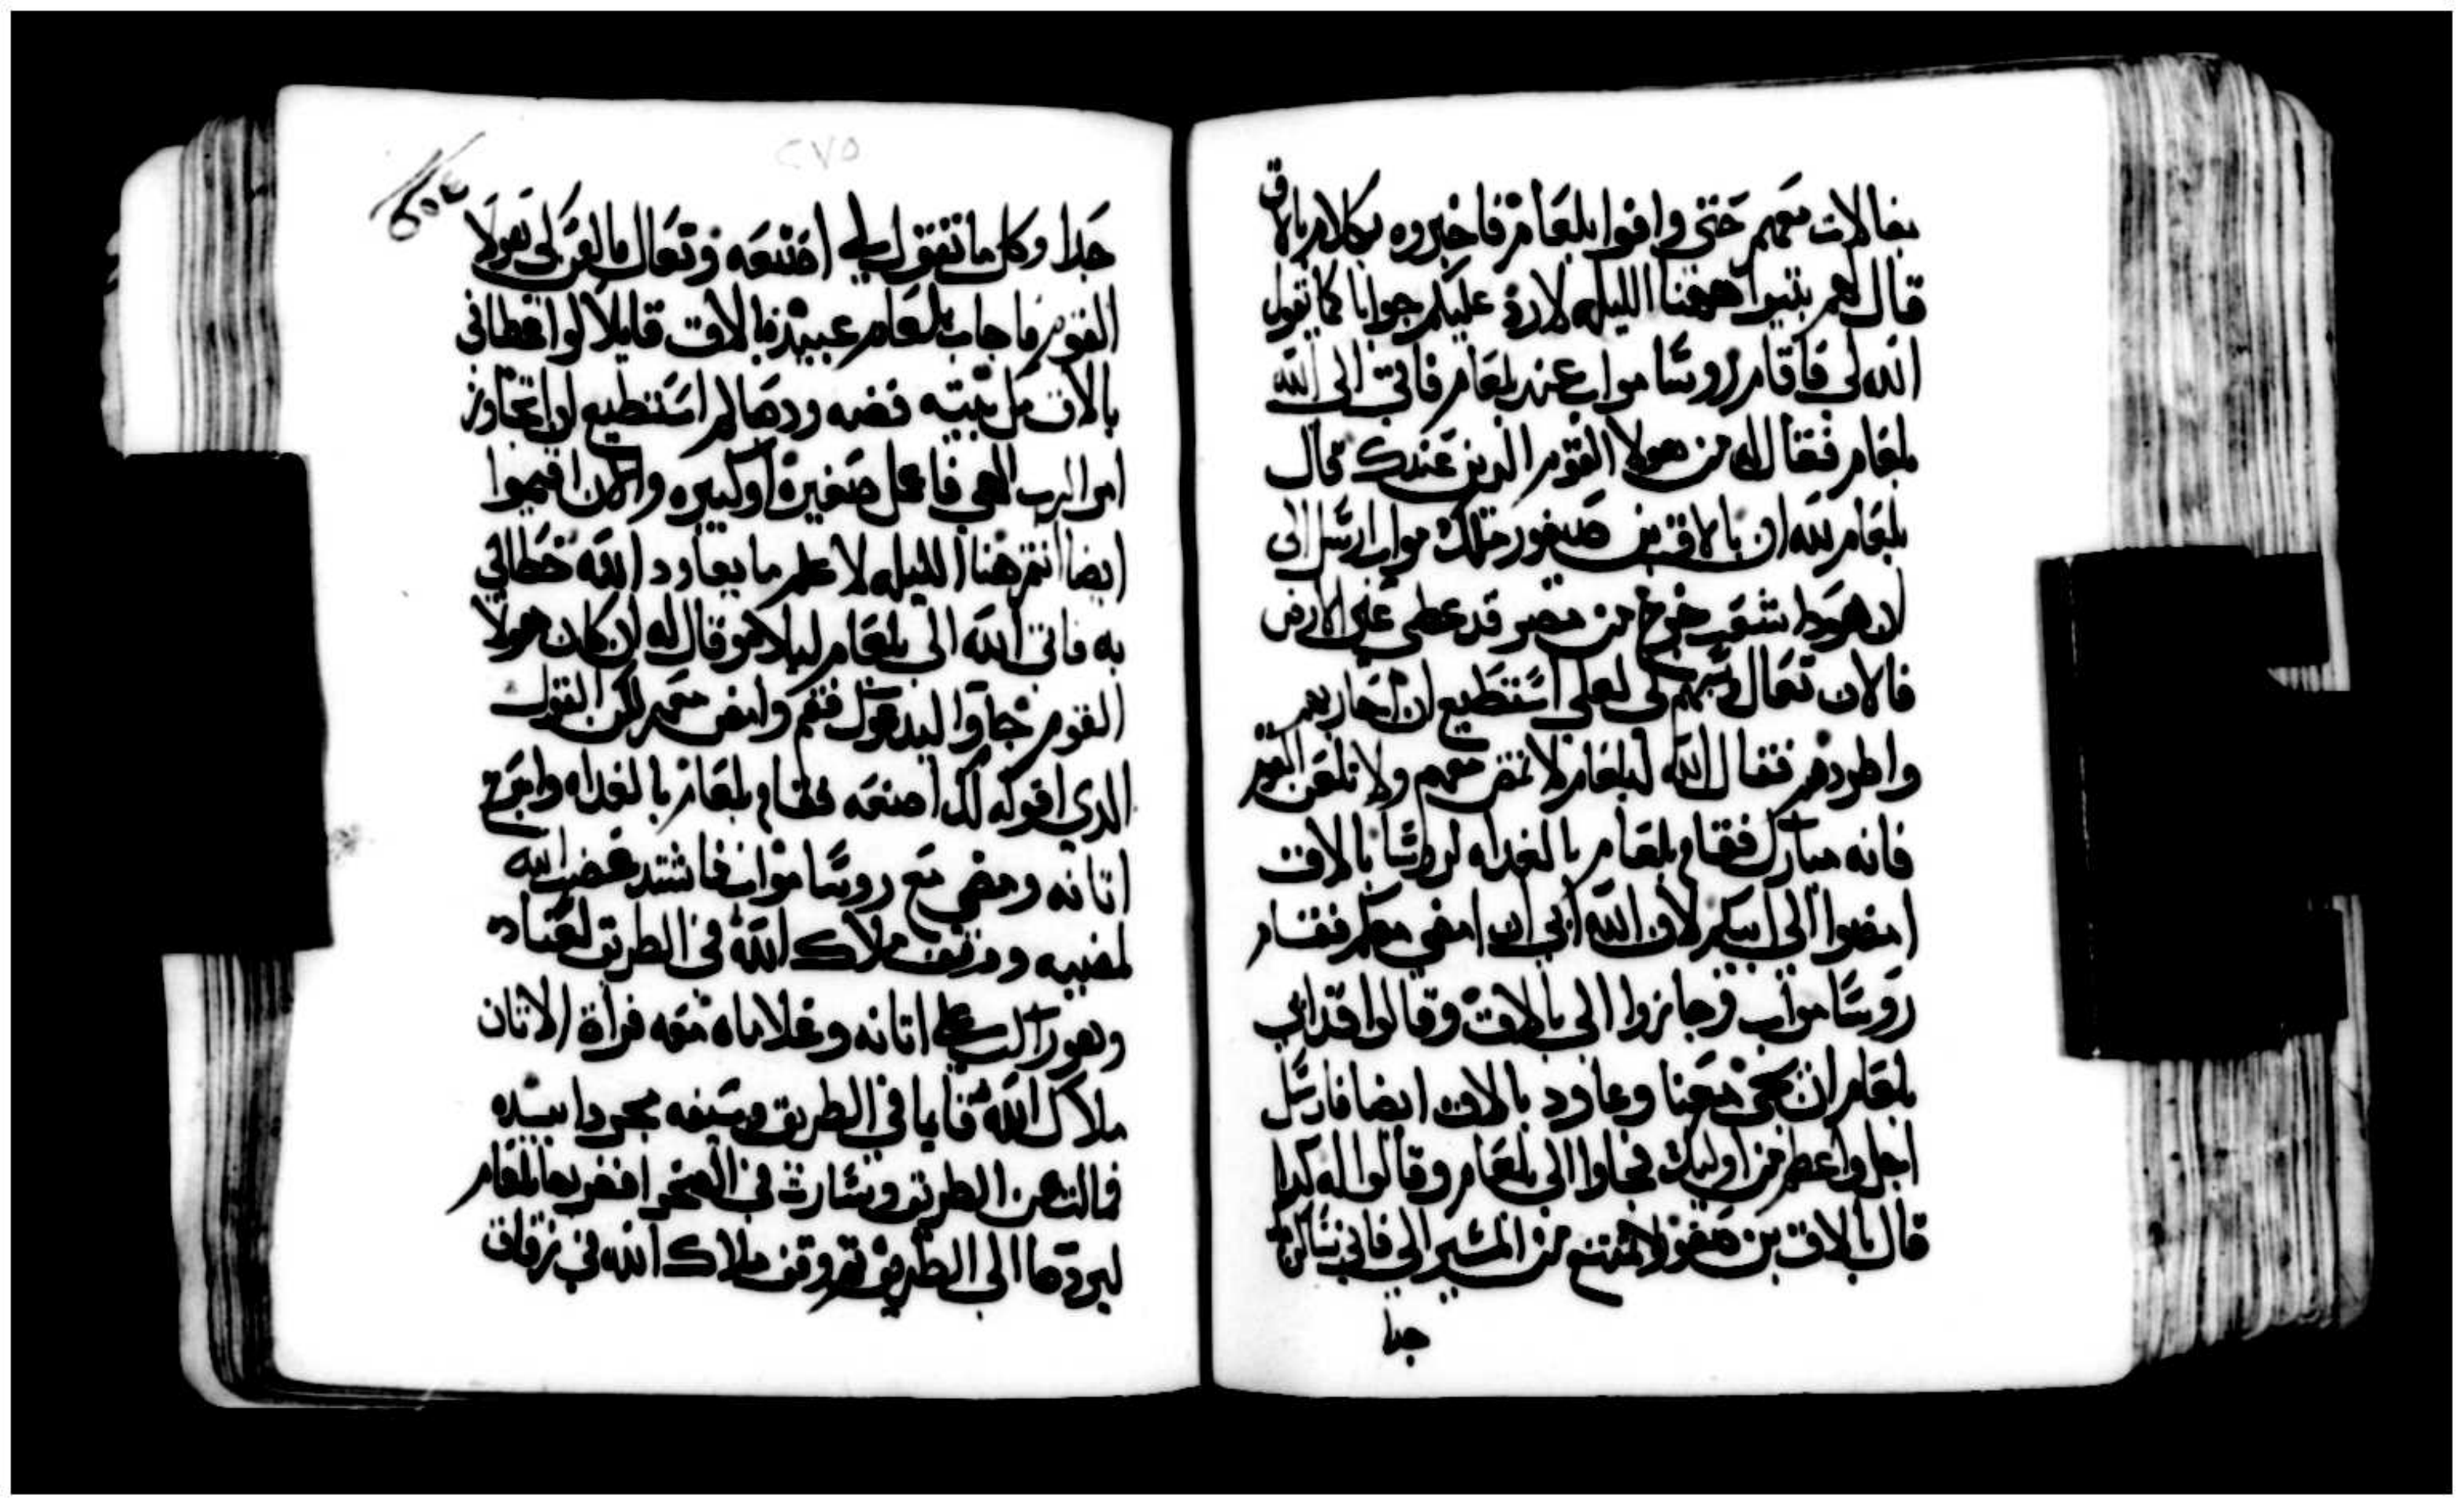 بفالات معهم حتي وافوا بلعام فاخبروه بكلام بالاق
قال لهم بتيوا ههنا الليله لارد عليكم جوابا كما يقول
الله لي فاقام روسا مواب عند بلعام فاتي الي الله
بلعام فقال له من هولا القوم الدين عندك قال
بلعام لله ان بالاق بن صيفور ملك مواب ارسل الي
ان هودا شعب خرج من مصر قد غطي علي الارض
فالان تعال وسبهم لي لعلي استطيع ان احاربهم
واطردهم فقال الله لبلعام لا تمض معهم ولا تلعن القوم
فانه مبارك فقام بلعام بالغداه لروسا بالاق
امضوا الي ابيكم لان الله ابي ان امضي معكم فقام
روسا مواب وجازوا الي بالاق وقالوا قد ابي
بلعام ان يجي معنا وعاود بالاق ايضا فارسل
اجل واعظم من اوليك فجاوا الي بلعام وقالوا له كدا
قال بالاق بن صفور لا تمتنع من المسير الي فاني ساكرمك
جدا
٢٧٥
جدا وكل ما تقول لي اصنعه وتعال فالعن لي هولا
القوم فاجاب بلعام عبيد بالاق قايلا لو اعطاني
بالاق مل بيته فضه ودهبا لم استطيع ان اتجاوز
امر الرب الهي فاعل صغيره او كبيره والان اقيموا
ايضا انتم هنا الليله لاعلم ما يعاود الله خطابي
به فاتي الله الي بلعام ليلا وقال له ان كان هولا
القوم جاوا ليدعوك فقم وامض معهم لكن القول
الدي اقوله لك اصنعه فقام بلعام بالغداه واسرج
اتانه ومضي مع روسا مواب فاشتد غضب الله
لمضييه ووقف ملاك الله في الطريق لعناده
وهو راكب علي اتانه وغلاماه معه فراة الاتان
ملاك الله قايما في الطريق وسيفه مجردا بيده
فمالت عن الطريق وسارت في الصحرا فضربها بلعام
ليردها الي الطريق ثم وقف ملاك الله في زقاق